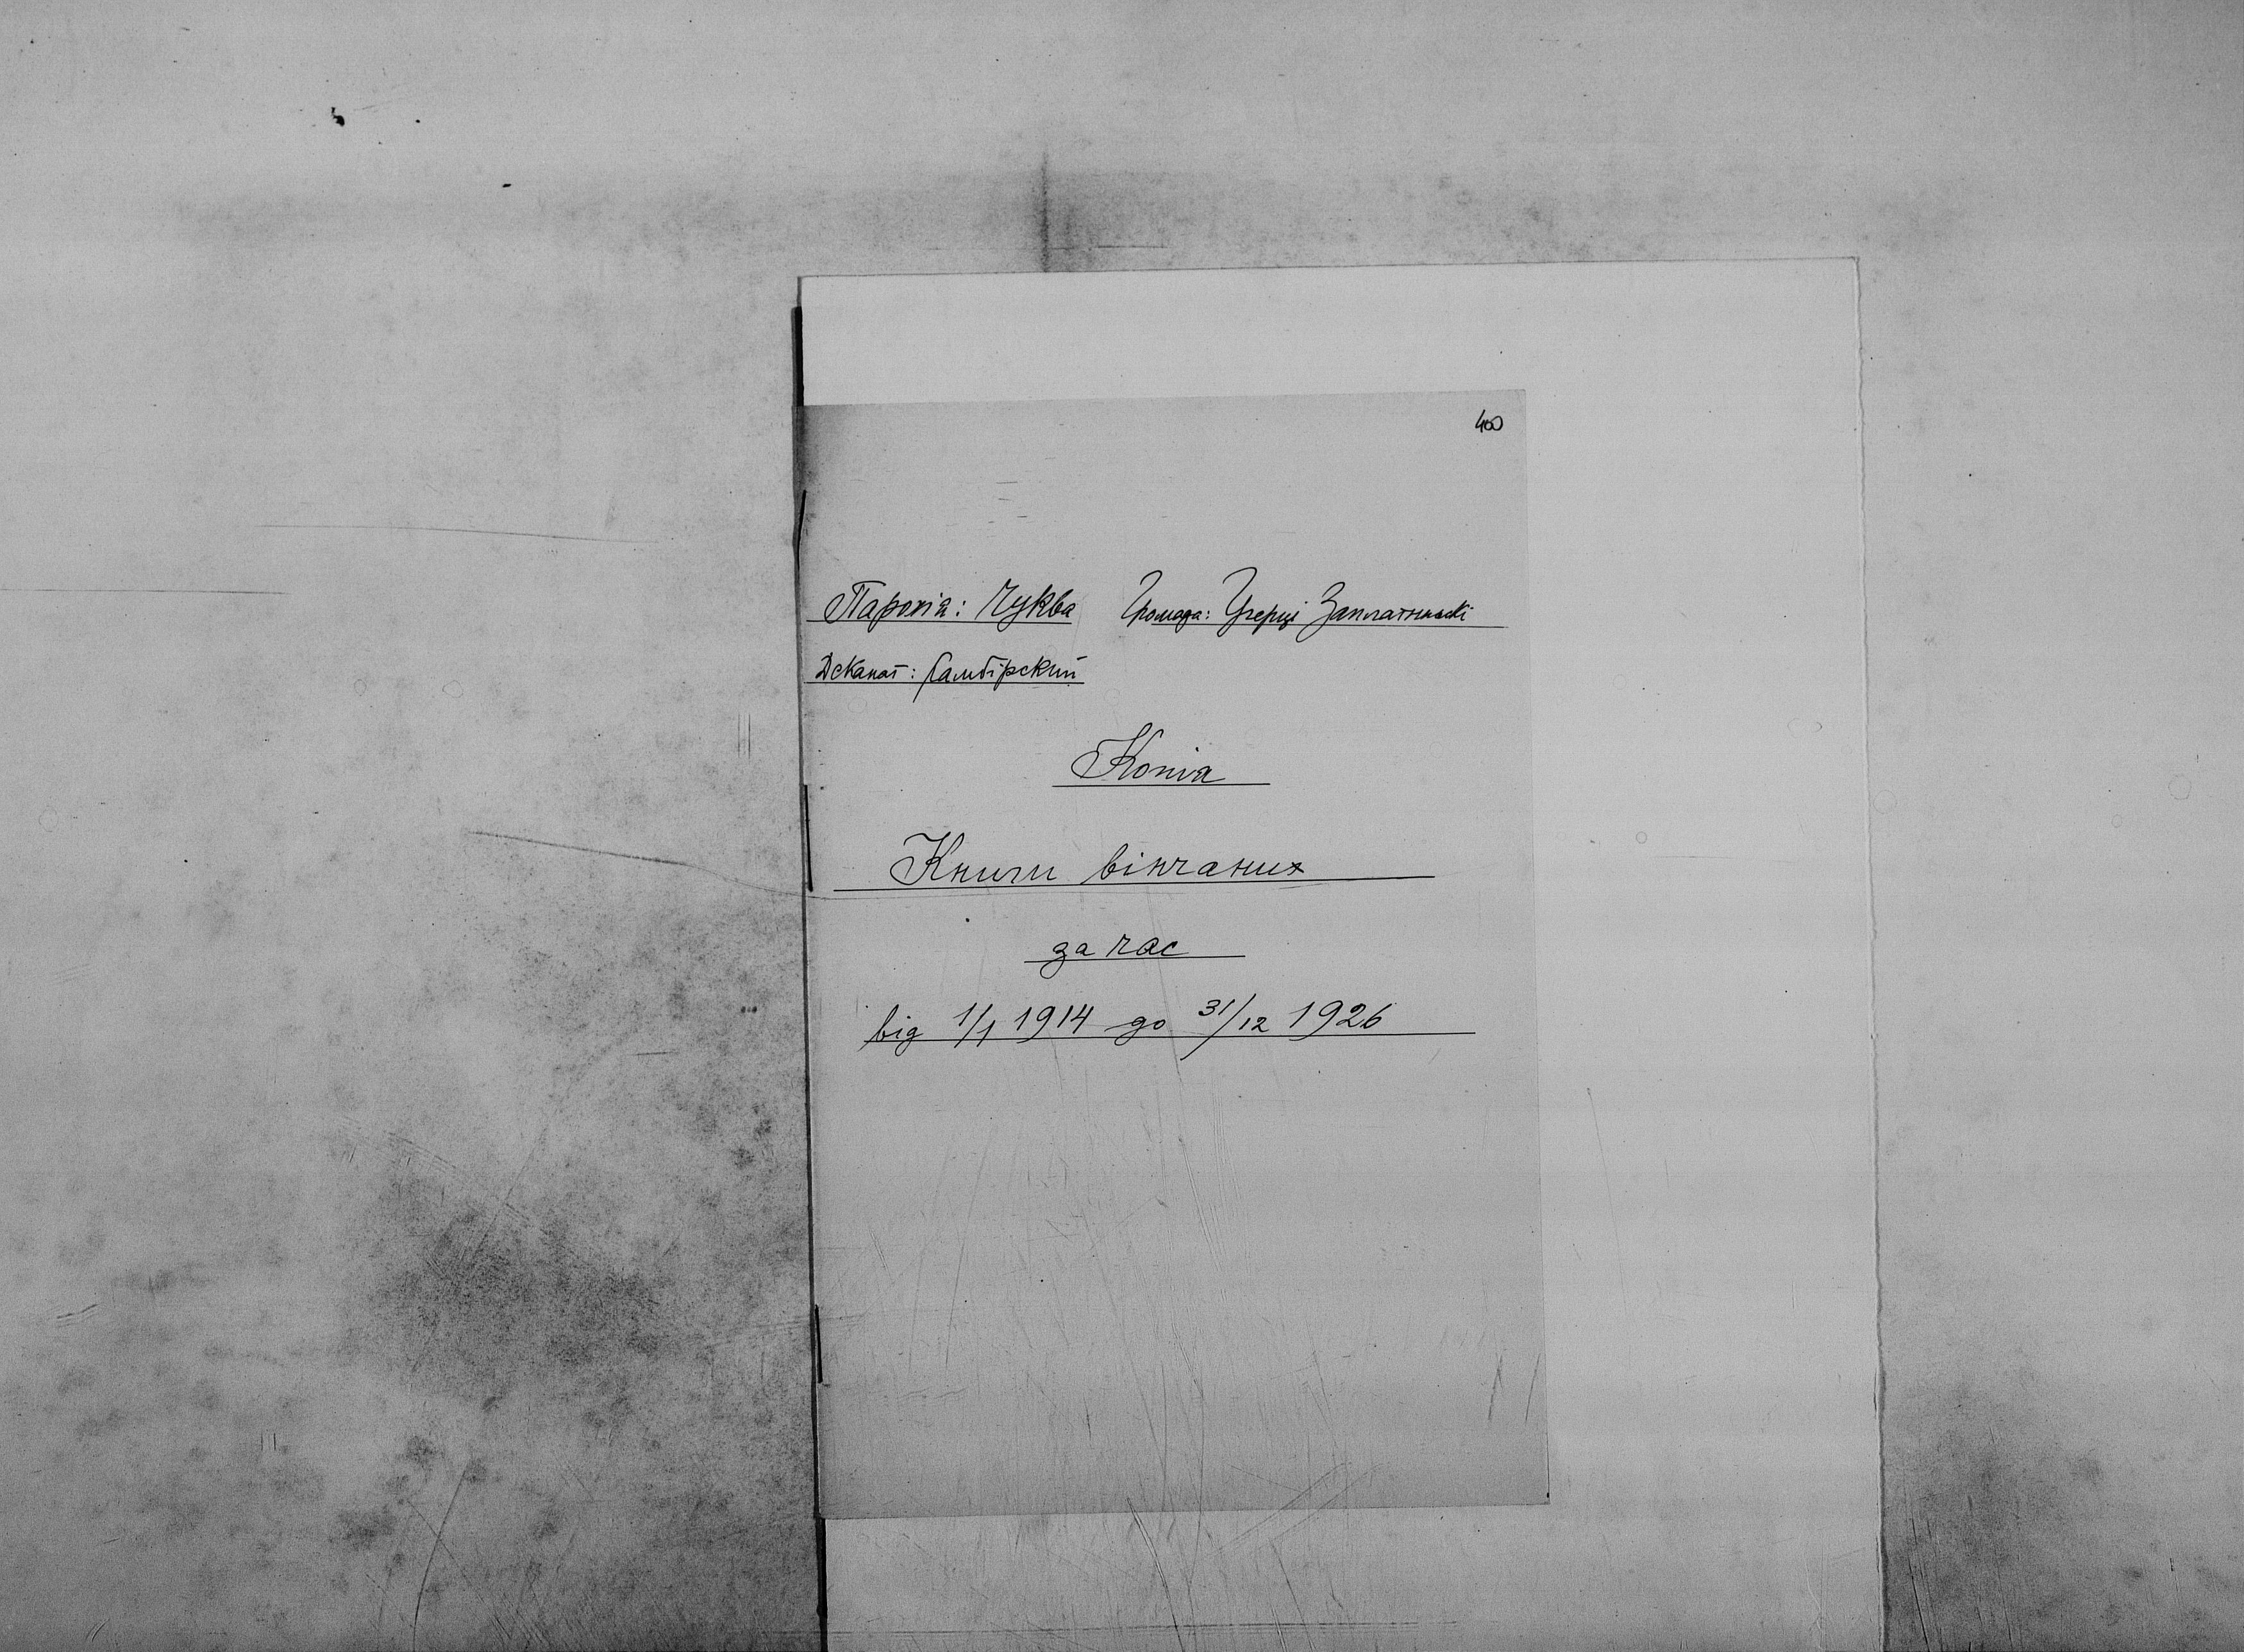 400
Парохія: Чуква Громада: Угерці Заплатинскі
Деканат: Самбірский
Копія
Книги вінчаних
за час
від 1/1 1914 до 31/12 1926